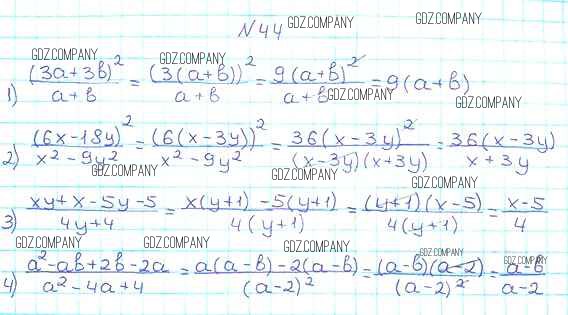 N44 GDZ.COMPANY GDZ.COMPANY
GDZ.COMPANY GDZ.COMPANY
1) (3a+3b)²/(a+b) = (3(a+b))²/(a+b) = 9(a+b)²/(a+b) = 9(a+b)
GDZ.COMPANY GDZ.COMPANY
2) (6x-18y)²/(x²-9y²) = (6(x-3y))²/(x²-9y²) = 36(x-3y)²/((x-3y)(x+3y)) = 36(x-3y)/(x+3y)
GDZ.COMPANY GDZ.COMPANY GDZ.COMPANY
3) (xy+x-5y-5)/(4y+4) = (x(y+1)-5(y+1))/(4(y+1)) = ((y+1)(x-5))/(4(y+1)) = (x-5)/4
GDZ.COMPANY GDZ.COMPANY GDZ.COMPANY GDZ.COMPANY GDZ.COMPANY
4) (a²-ab+2b-2a)/(a²-4a+4) = (a(a-b)-2(a-b))/(a-2)² = ((a-b)(a-2))/(a-2)² = (a-b)/(a-2)